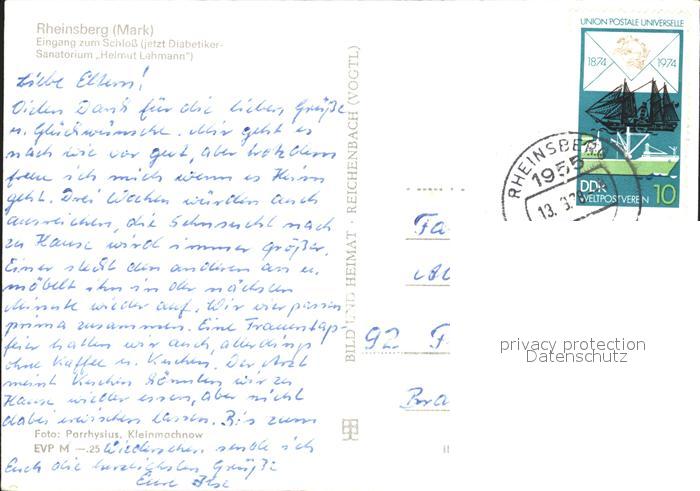 Rheinsberg (Mark)
Eingang zum Schloß (jetzt Diabetiker-
Sanatorium „Helmut Lehmann")
Liebe Eltern!
Vielen Dank für die lieben Grüße
u. Glückwünsche. Mir geht es
nach wie vor gut, aber trotzdem
freue ich mich wenn es Heim
geht. Drei Wochen würden auch
ausreichen, die Sehnsucht nach
zu Hause wird immer größer.
Einer steckt den anderen an u.
möbelt ihn in der nächsten
Minute wieder auf. Wir vier passen
prima zusammen. Eine Frauentags-
feier hatten wir auch, allerdings
ohne Kaffee u. Kuchen. Der Arzt
meint Kuchen könnten wir zu
Hause wieder essen, aber nicht
dabei erwischen lassen. Bis zum
Foto: Parrhysius, Kleinmachnow
EVP M —.25 Wiedersehen sende ich
Euch die herzlichsten Grüße
Eure
BILD UND HEIMAT · REICHENBACH (VOGTL)
UNION POSTALE UNIVERSELLE
1874 1974
DDR 10
WELTPOSTVEREIN
RHEINSBERG
1955
13. 3.
Fa
92 F
Bra
privacy protection
Datenschutz